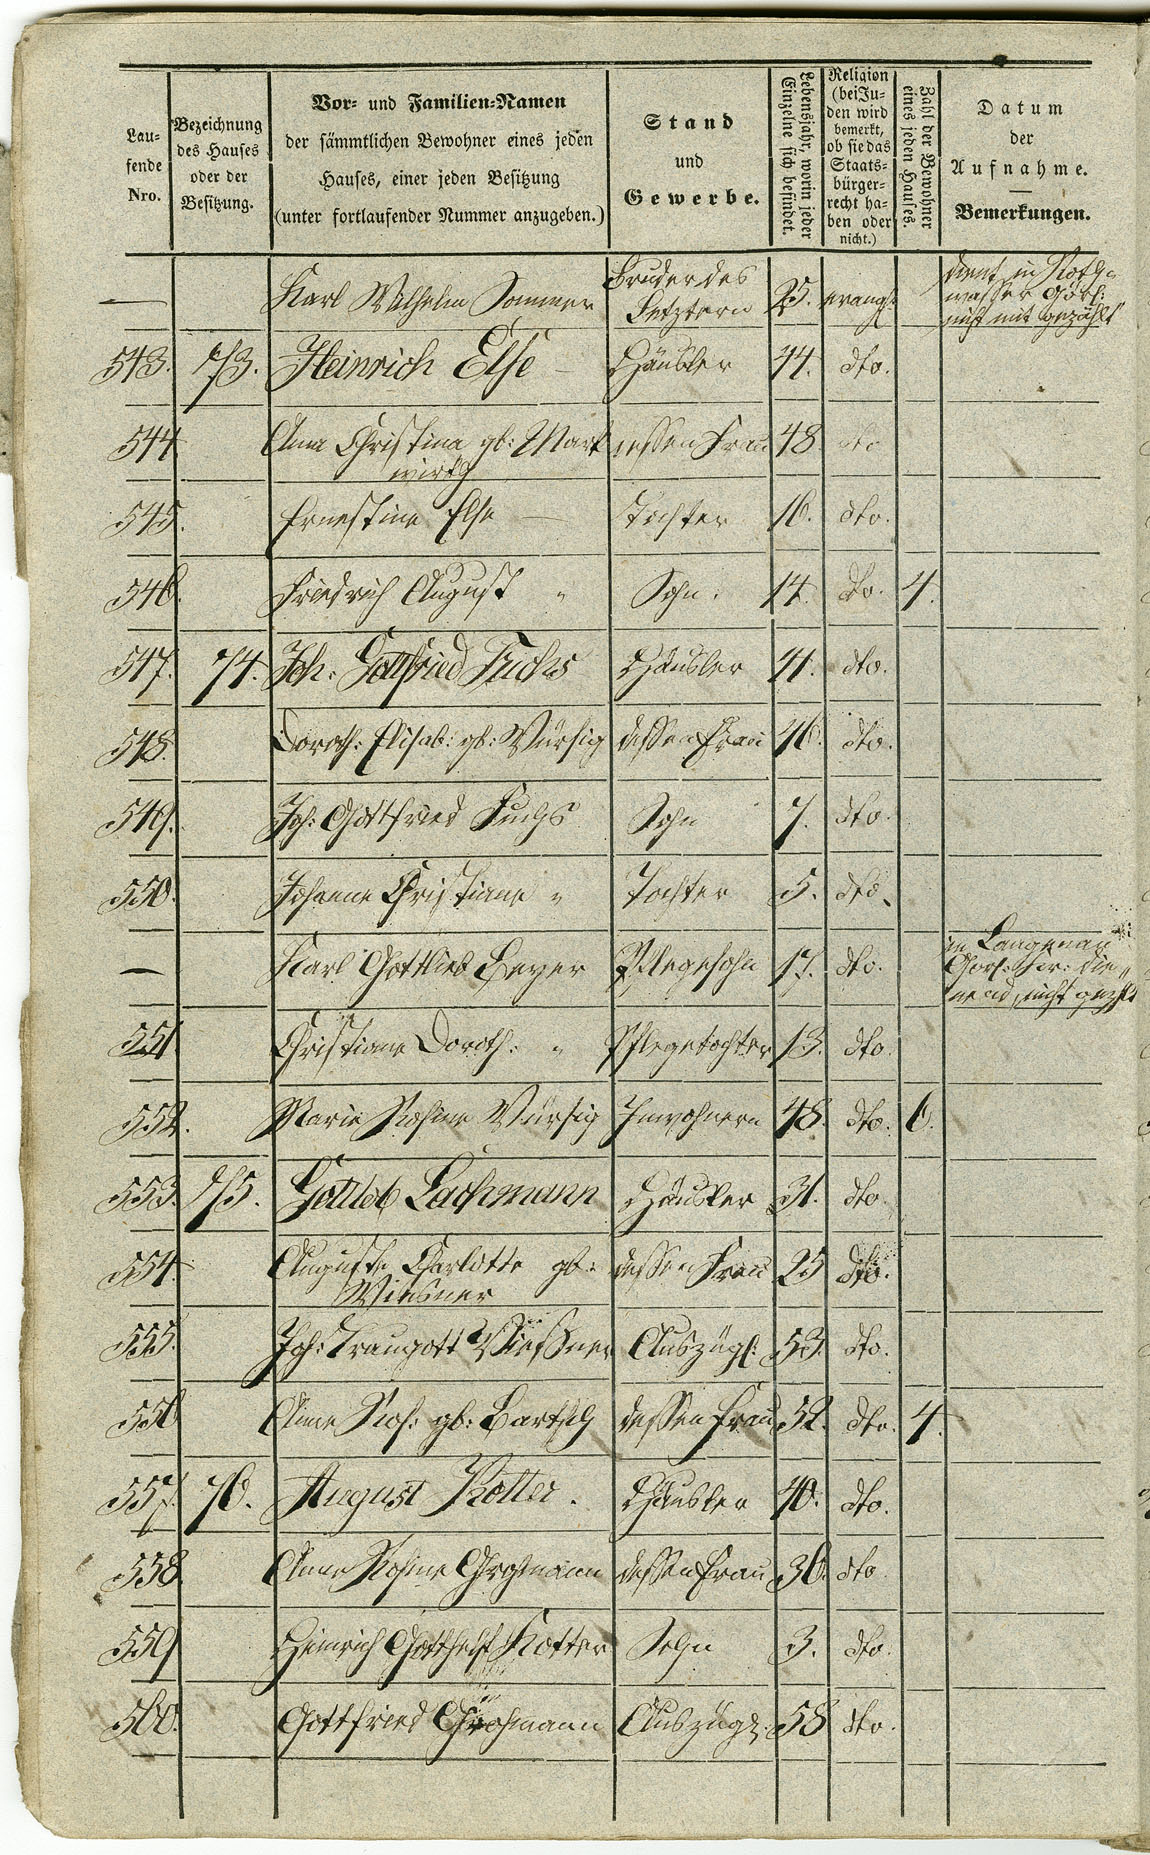 Lau-
fende
Nro.
Bezeichnung
des Hauses
oder der
Besitzung.
Vor- und Familien-Namen
der sämmtlichen Bewohner eines jeden
Hauses, einer jeden Besitzung
(unter fortlaufender Nummer anzugeben.)
Stand
und
Gewerbe.
Lebensjahr, worin jeder
Einzelne sich befindet.
Religion
(bei Ju-
den wird
bemerkt,
ob sie das
Staats-
bürger-
recht ha-
ben oder
nicht.)
Zahl der Bewohner
eines jeden Hauses.
Datum
der
Aufnahme.
Bemerkungen.
— Karl Wilhelm Sommer Bruder des Letztern 25. evangl. dient in Roth-
wasser Görl:
nicht mit gezählt
543. 73. Heinrich Else — Häusler 44. dto.
544 Anna Christina gb: Mark dessen Frau 48 dto
wirth
545. Ernestine Else — Tochter 16. dto.
546. Friedrich August " Sohn. 14. dto. 4.
547. 74. Joh: Gottfried Fuchs Häusler 41. dto.
548. Doroth: Elisab: gb: Würsig dessen Frau 46. dto.
549. Joh: Gottfried Fuchs Sohn 7. dto.
550. Johanne Christiane " Tochter 5. dto.
— Karl Gottlieb Beyer Pflegesohn 17. dto. in Langenau
Görl: die-
nend, nicht gezählt
551 Christiane Doroth: " Pflegetochter 13. dto.
552. Marie Rosine Würsig Inwohnern 48. dto. 6.
553. 75. Gottlob Lachmann Häusler 31. dto.
554. Auguste Charlotte gb: dessen Frau 25 dto.
Wiesner
555. Joh: Traugott Wießner Auszügl: 53. dto.
556 Anne Ros: gb: Bartsch dessen Frau 52. dto. 4.
557. 76. August Kotter. Häusler 40. dto.
558. Anne Rosine Grohmann dessen Frau 36. dto.
559 Heinrich Gotthelf Kotter Sohn 3. dto.
560. Gottfried Grohmann Auszügl. 58 dto.